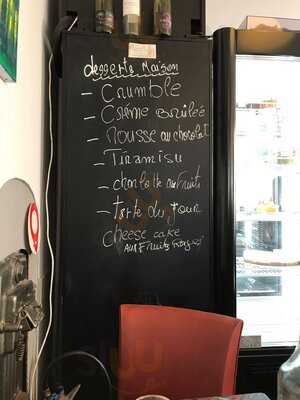 desserts Maison
- Crumble
- Créme Brulée
- Mousse au chocolat
- Tiramisu
- charlotte au fruits
- tarte du jour
cheese cake
AUX FRUITS Rouges